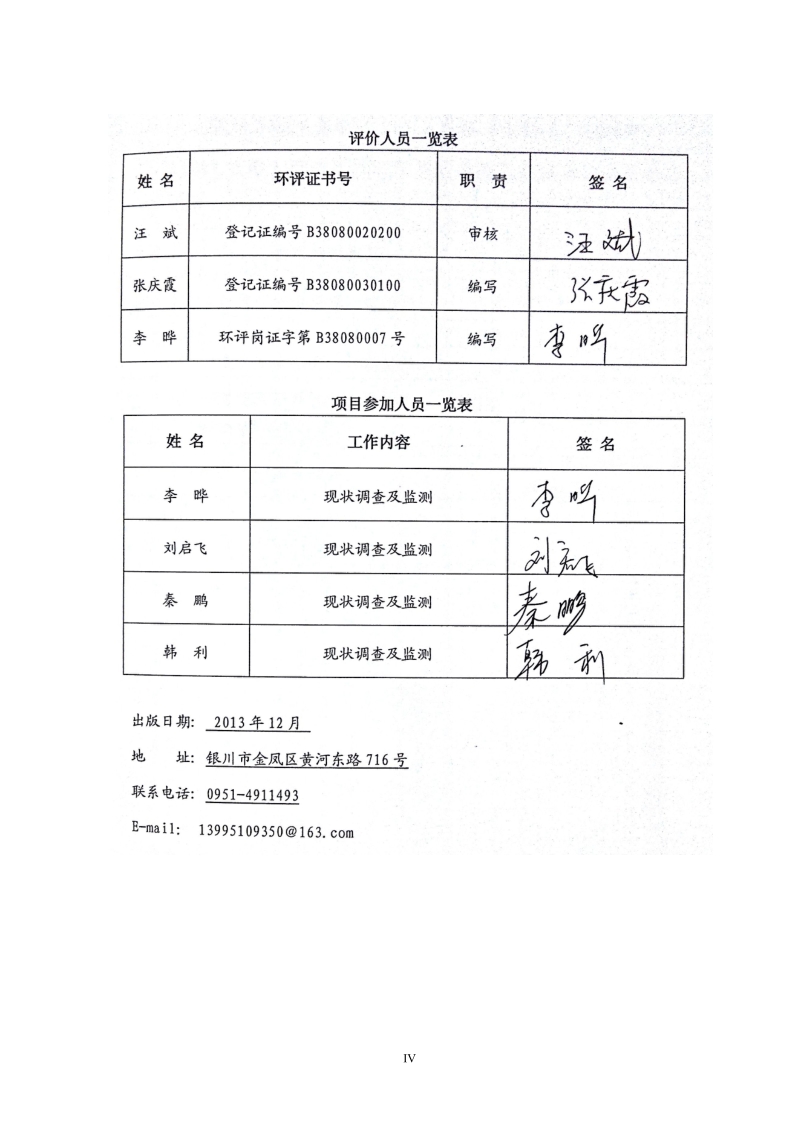 评价人员一览表
姓 名 环评证书号 职 责 签 名
汪 斌 登记证编号 B38080020200 审核 汪 斌
张庆霞 登记证编号 B38080030100 编写 张庆霞
李 晔 环评岗证字第 B38080007 号 编写 李 晔
项目参加人员一览表
姓 名 工作内容 签 名
李 晔 现状调查及监测 李 晔
刘启飞 现状调查及监测 刘启飞
秦 鹏 现状调查及监测 秦 鹏
韩 利 现状调查及监测 韩 利
出版日期: 2013 年 12 月
地 址: 银川市金凤区黄河东路 716 号
联系电话: 0951-4911493
E-mail: 13995109350@163.com
IV